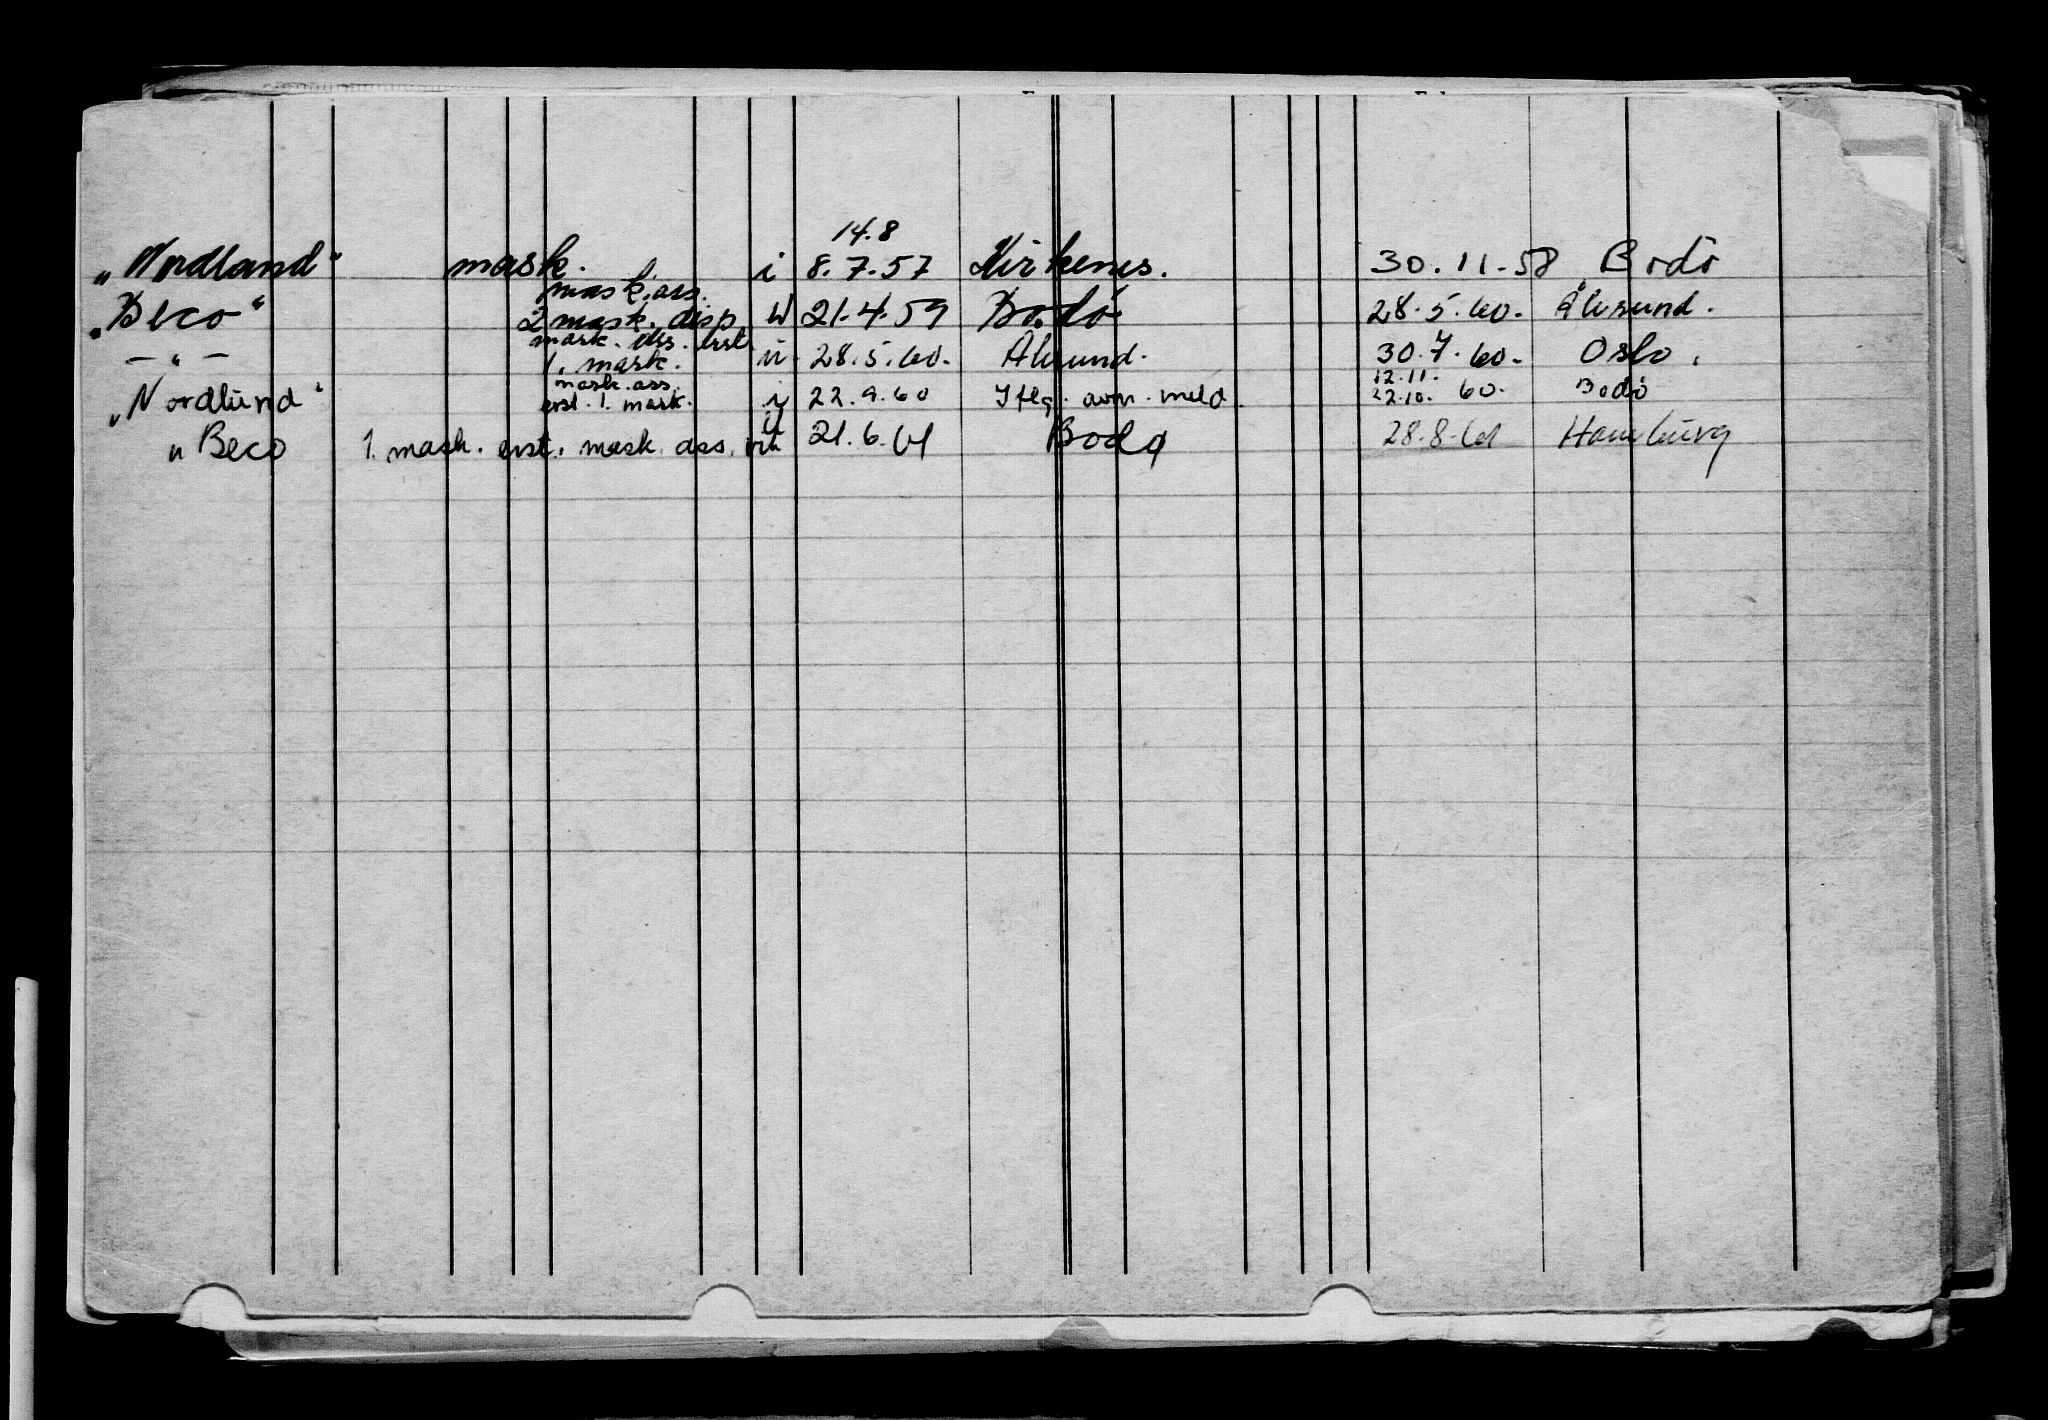 14.8
„Nordland" mask. i 8.7.57 Kirkenes. 30.11.58 Bodö
mask.ass.
„Beco" 2 mask. disp 21.4.59 Bodö 28.5.60. Ålesund.
mask. ass. erst.
— „ — 1. mask. ü 28.5.60. Ålesund. 30.7.60. Oslo.
mask.ass. 12.11.
„Nordlund" erst. 1. mask. i 22.9.60 Iflg. avm. meld. 22.10. 60. Bodö
„ Beco 1. mask. erst. mask. ass. 21.6.61 Bodø 28.8.61 Hamburg